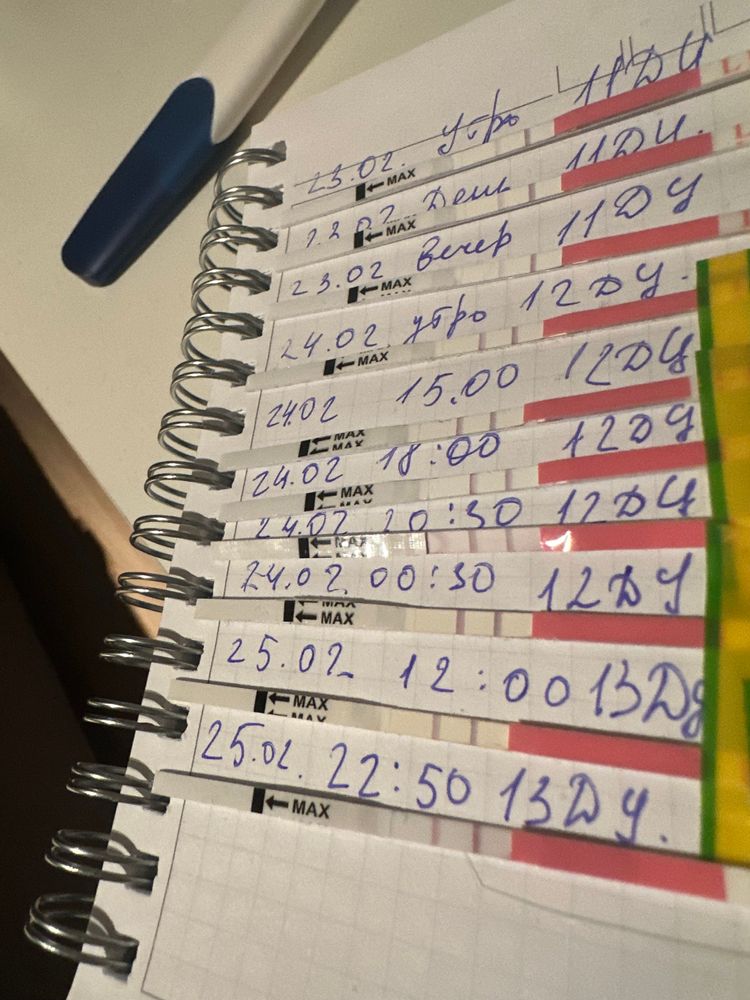 23.02. утро 11ДЦ
← MAX
23.02 День 11ДЦ.
← MAX
23.02 вечер 11ДЦ
← MAX
24.02 утро 12ДЦ.
← MAX
24.02 15.00 12ДЦ
← MAX
24.02 18:00 12ДЦ
← MAX
24.02 20:30 12ДЦ
← MAX
24.02 00:30 12ДЦ
← MAX
25.02 12:00 13ДЦ
← MAX
25.02. 22:50 13ДЦ.
← MAX